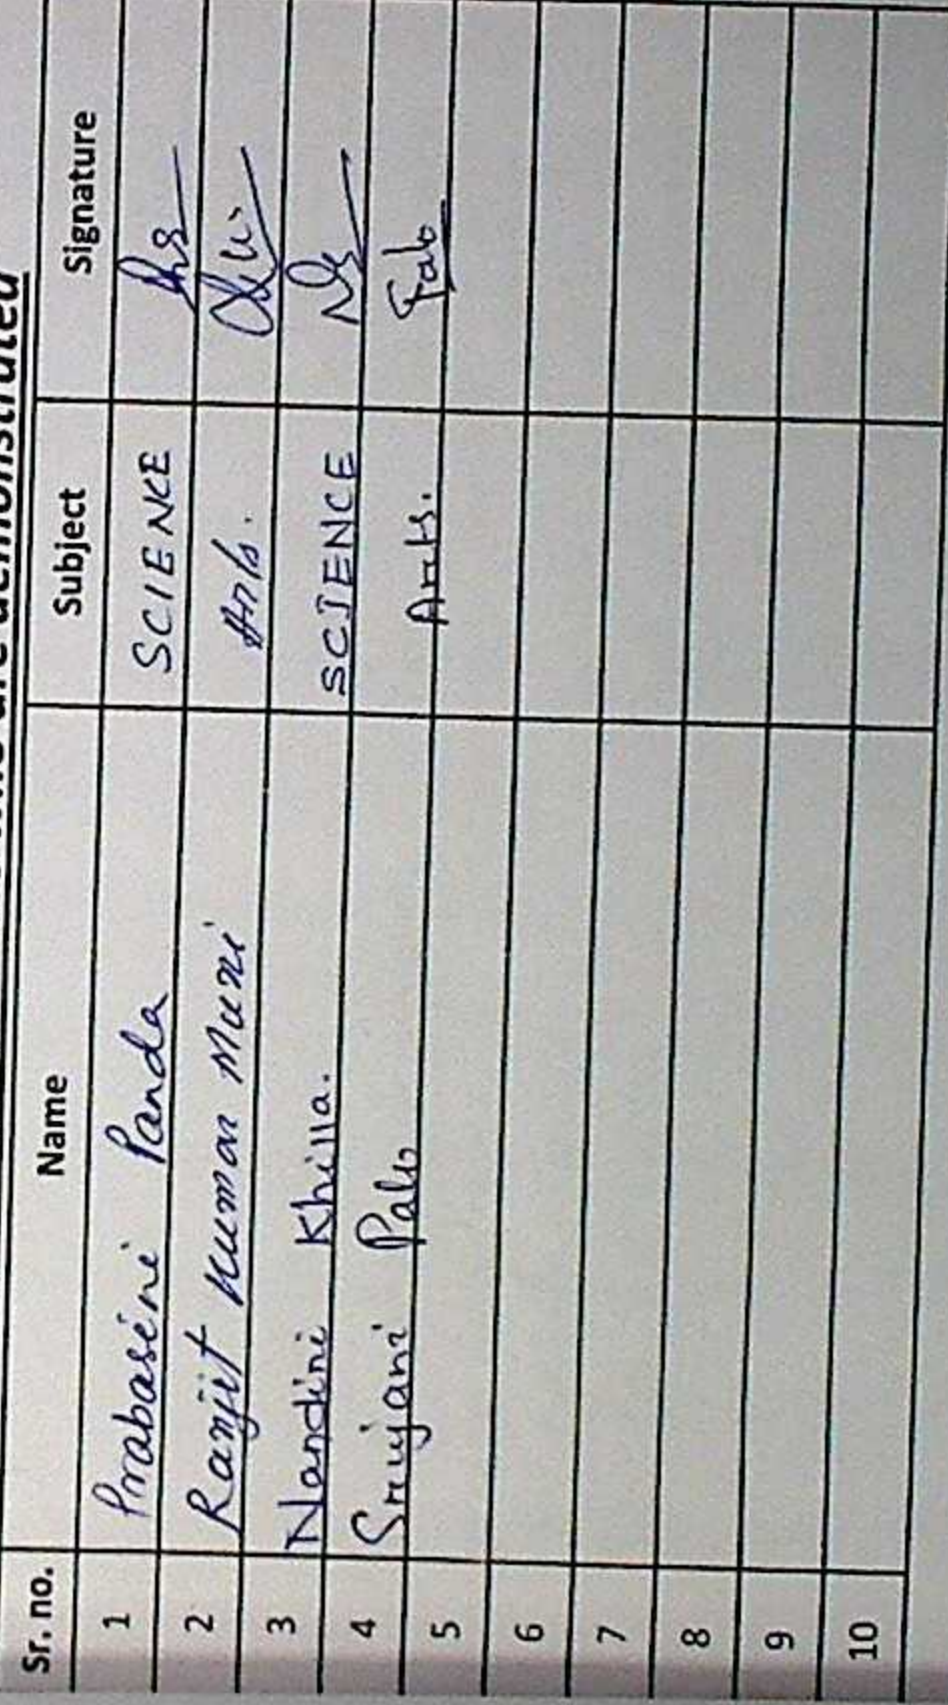 who are demonstrated
Sr. no. Name Subject Signature
1 Prabasini Panda SCIENCE
2 Ranjit Kumar Muni Arts.
3 Nandini Khilla. SCIENCE
4 Srujani Palo Arts. Palo
5
6
7
8
9
10